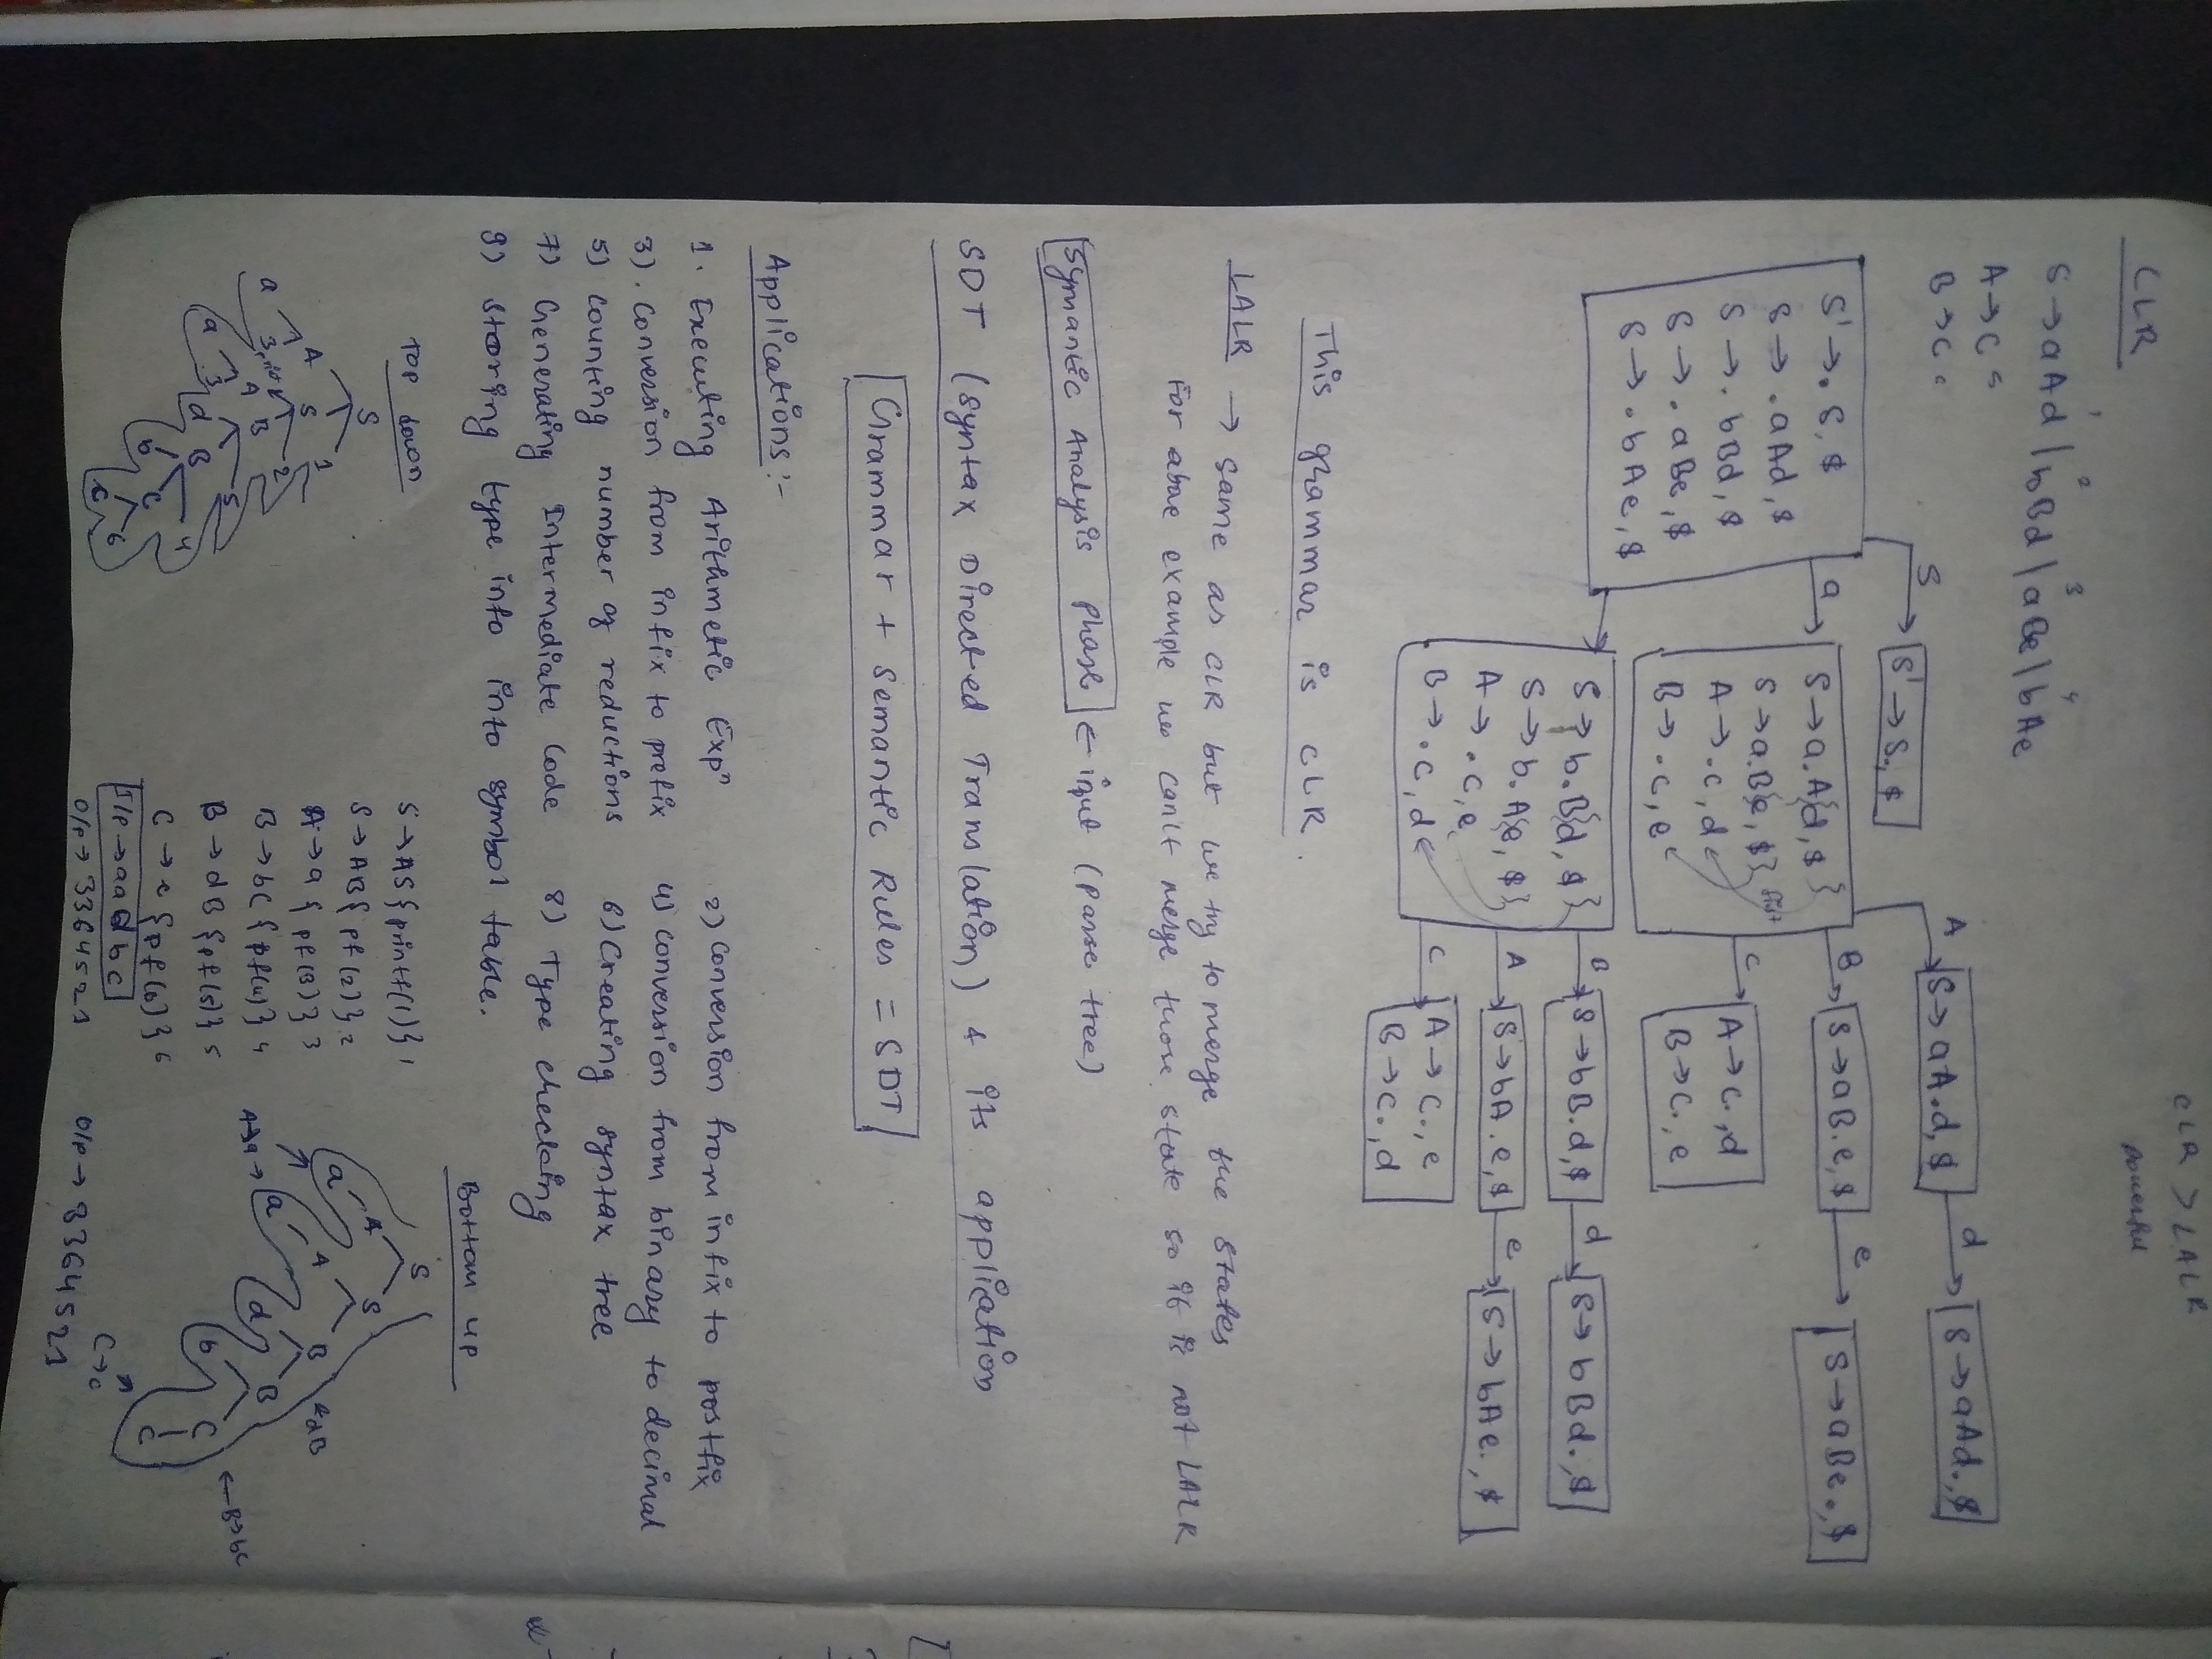 CLR
CLR > LALR
powerful
S → aAd / bBd / aBe / bAe
1 2 3 4
A → c 5
B → c
S' → .S, $
S → .aAd, $
S → .bBd, $
S → .aBe, $
S → .bAe, $
S
S' → S., $
a
S → a.A{d, $}
S → a.B{e, $}
A → .c, d
B → .c, e
A
S → aA.d, $
d
S → aAd., $
B
S → aB.e, $
e
S → aBe., $
c
A → c., d
B → c., e
S → b.B{d, $}
S → b.A{e, $}
A → .c, e
B → .c, d
B
S → bB.d, $
d
S → bBd., $
A
S → bA.e, $
e
S → bAe., $
c
A → c., e
B → c., d
This grammar is CLR.
LALR → same as CLR but we try to merge the states
For above example we can't merge those state so it is not LALR
Symantic Analysis phase ← input (Parse tree)
SDT (Syntax Directed Translation) & its application
Grammar + Semantic Rules = SDT
Applications :-
1. Executing Arithmetic Expⁿ 2) Conversion from infix to postfix
3). Conversion from infix to prefix 4) conversion from binary to decimal
5) Counting number of reductions 6) Creating syntax tree
7) Generating Intermediate Code 8) Type checking
9) Storing type info into symbol table.
Top down
S
A S 1
a 3 A B 2
a 3 d B 5
b C 4
c 6
S → AS { printf(1) } 1
S → AB { pf(2) } 2
A → a { pf(3) } 3
B → bC { pf(4) } 4
B → dB { pf(5) } 5
C → c { pf(6) } 6
I/P → aadbc
O/P → 3364521
Bottom up
S
A S
a A B
A→a → a d B
b C
c
dB
← B→bC
C→c
O/P → 3364521